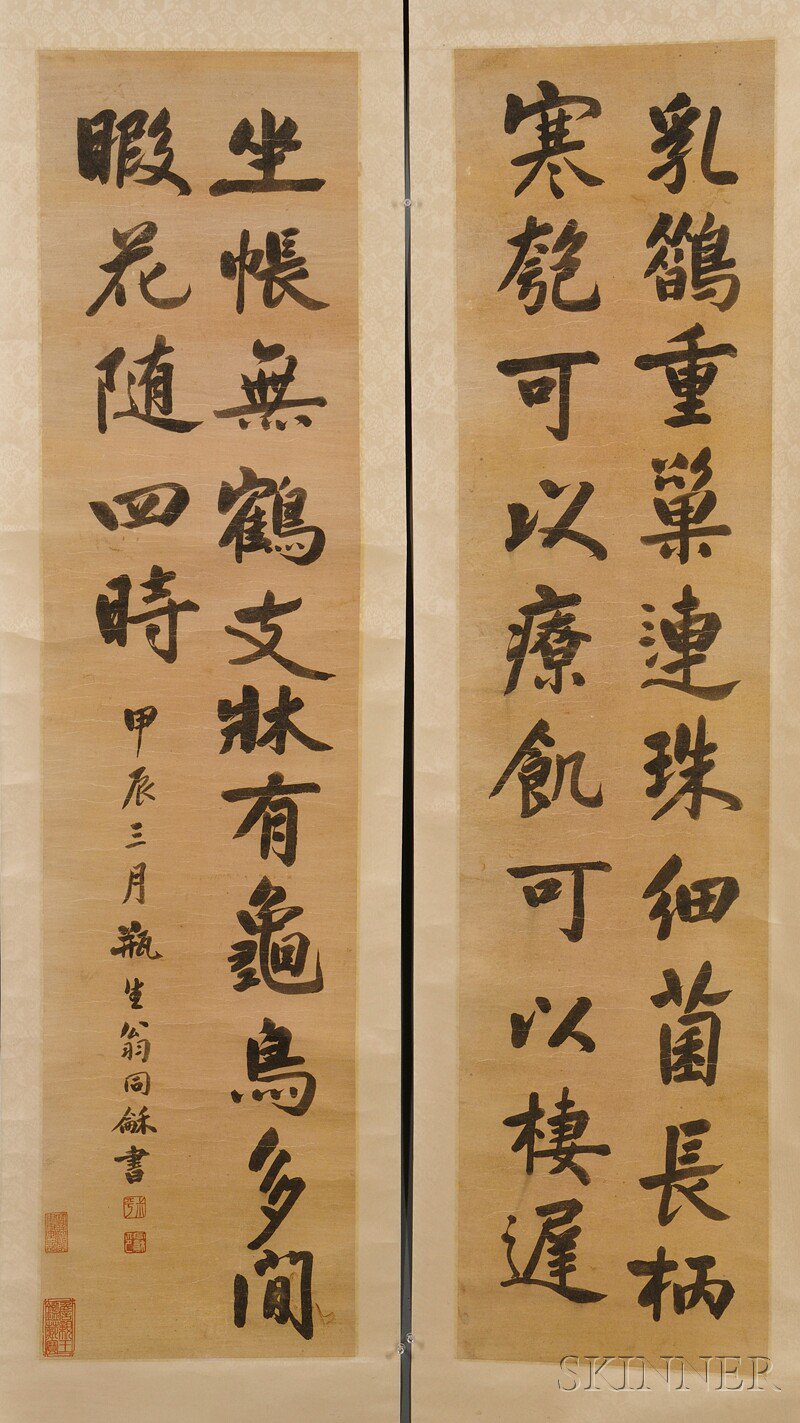 乳鷂重巢連珠細菌長柄
寒匏可以療飢可以棲遲
坐帳無鶴支牀有龜鳥多閒
暇花随四時
甲辰三月瓶生翁同龢書
SKINNER